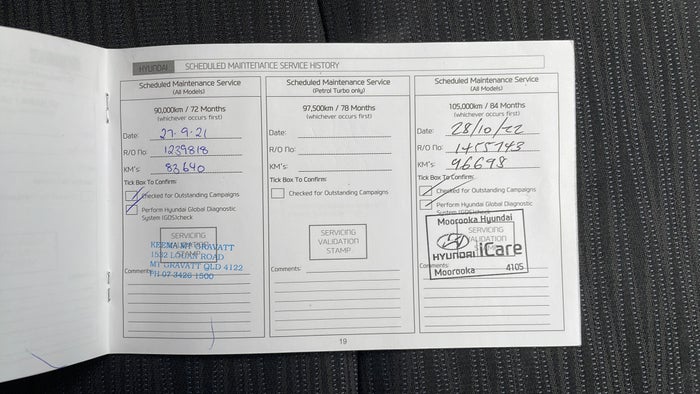 HYUNDAI SCHEDULED MAINTENANCE SERVICE HISTORY
Scheduled Maintenance Service
(All Models)
90,000km / 72 Months
(whichever occurs first)
Date: 27.9.21
R/O No: 1239818
KM's: 83640
Tick Box To Confirm:
Checked for Outstanding Campaigns
Perform Hyundai Global Diagnostic
System (GDS)check
SERVICING
VALIDATION
STAMP
KEEMA MT GRAVATT
1532 LOGAN ROAD
MT GRAVATT QLD 4122
PH 07 3426 1500
Comments:
Scheduled Maintenance Service
(Petrol Turbo only)
97,500km / 78 Months
(whichever occurs first)
Date:
R/O No:
KM's:
Tick Box To Confirm:
Checked for Outstanding Campaigns
SERVICING
VALIDATION
STAMP
Comments:
Scheduled Maintenance Service
(All Models)
105,000km / 84 Months
(whichever occurs first)
Date: 28/10/22
R/O No: 1455743
KM's: 96698
Tick Box To Confirm:
Checked for Outstanding Campaigns
Perform Hyundai Global Diagnostic
System (GDS)check
Moorooka Hyundai
SERVICING
VALIDATION
STAMP
HYUNDAI iCare
Comments:
Moorooka 4105
19